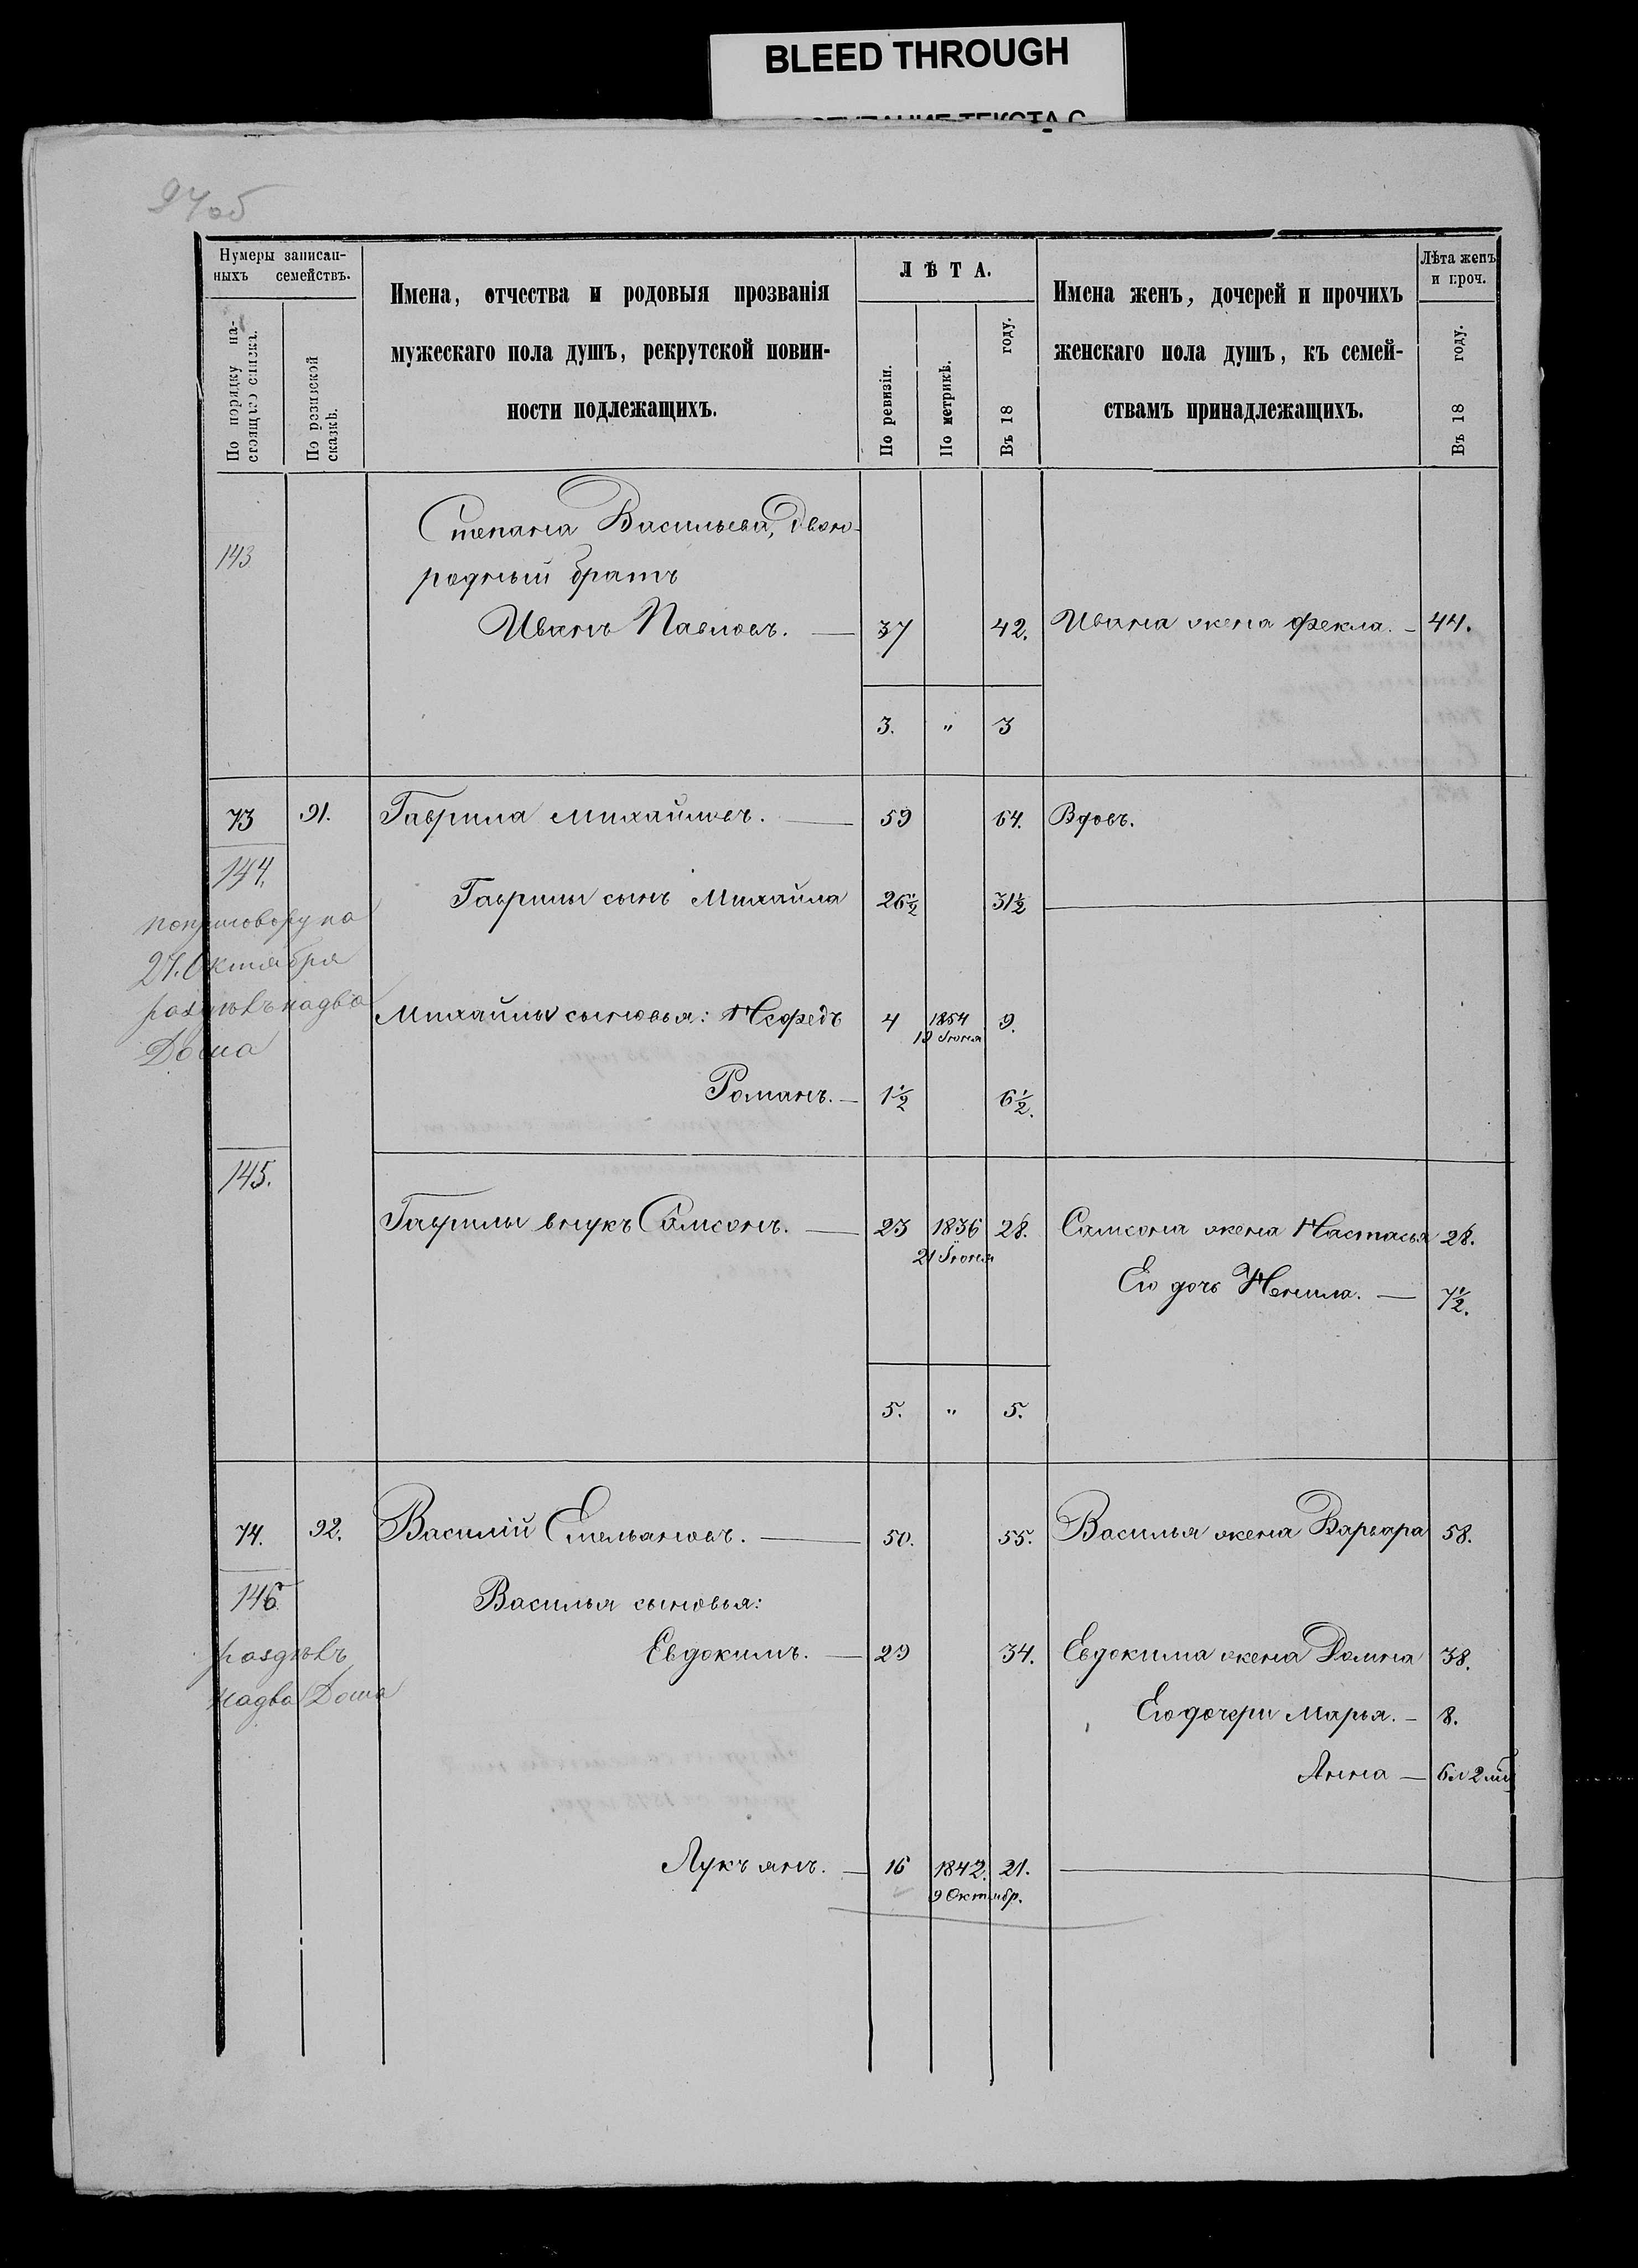 BLEED THROUGH
94об
Нумеры записан-
ныхъ семействъ.
По порядку на-
стоящаго списка.
По ревизской
сказкѣ.
Имена, отчества и родовыя прозванія
мужескаго пола душъ, рекрутской повин-
ности подлежащихъ.
ЛѢТА.
По ревизіи.
По метрикѣ.
Въ 18 году.
Имена женъ, дочерей и прочихъ
женскаго пола душъ, къ семей-
ствамъ принадлежащихъ.
Лѣта женъ
и проч.
Въ 18 году.
143 Степана Васильева, двою-
родный братъ
Иванъ Павловъ. — 37 42. Ивана жена Фекла. — 44.
3. " 3
73 91. Гаврила Михайловъ. — 59 64. Вдовъ.
144.
Гаврилы сынъ Михайла 26½ 31½
по приговору на
27. Октября
раздѣлъ на два
Дома
Михайлы сыновья: 4 1854 9.
19 Іюня
Романъ. — 1½ 6½.
145.
Гаврилы внукъ Самсонъ. — 23 1836 28. Самсона жена Настасья 28.
21 Іюня
Его дочь Ненила. — 7½.
5. " 5.
74. 92. Василій Емельяновъ. — 50. 55. Василья жена Варвара 58.
146 Василья сыновья:
раздѣлъ Евдокимъ. — 29 34. Евдокима жена Домна 38.
на два Дома Его дочери Марья. — 8.
Анна — 6 л 2 мц
Лукъянъ. — 16 1842. 21.
9 Октябр.